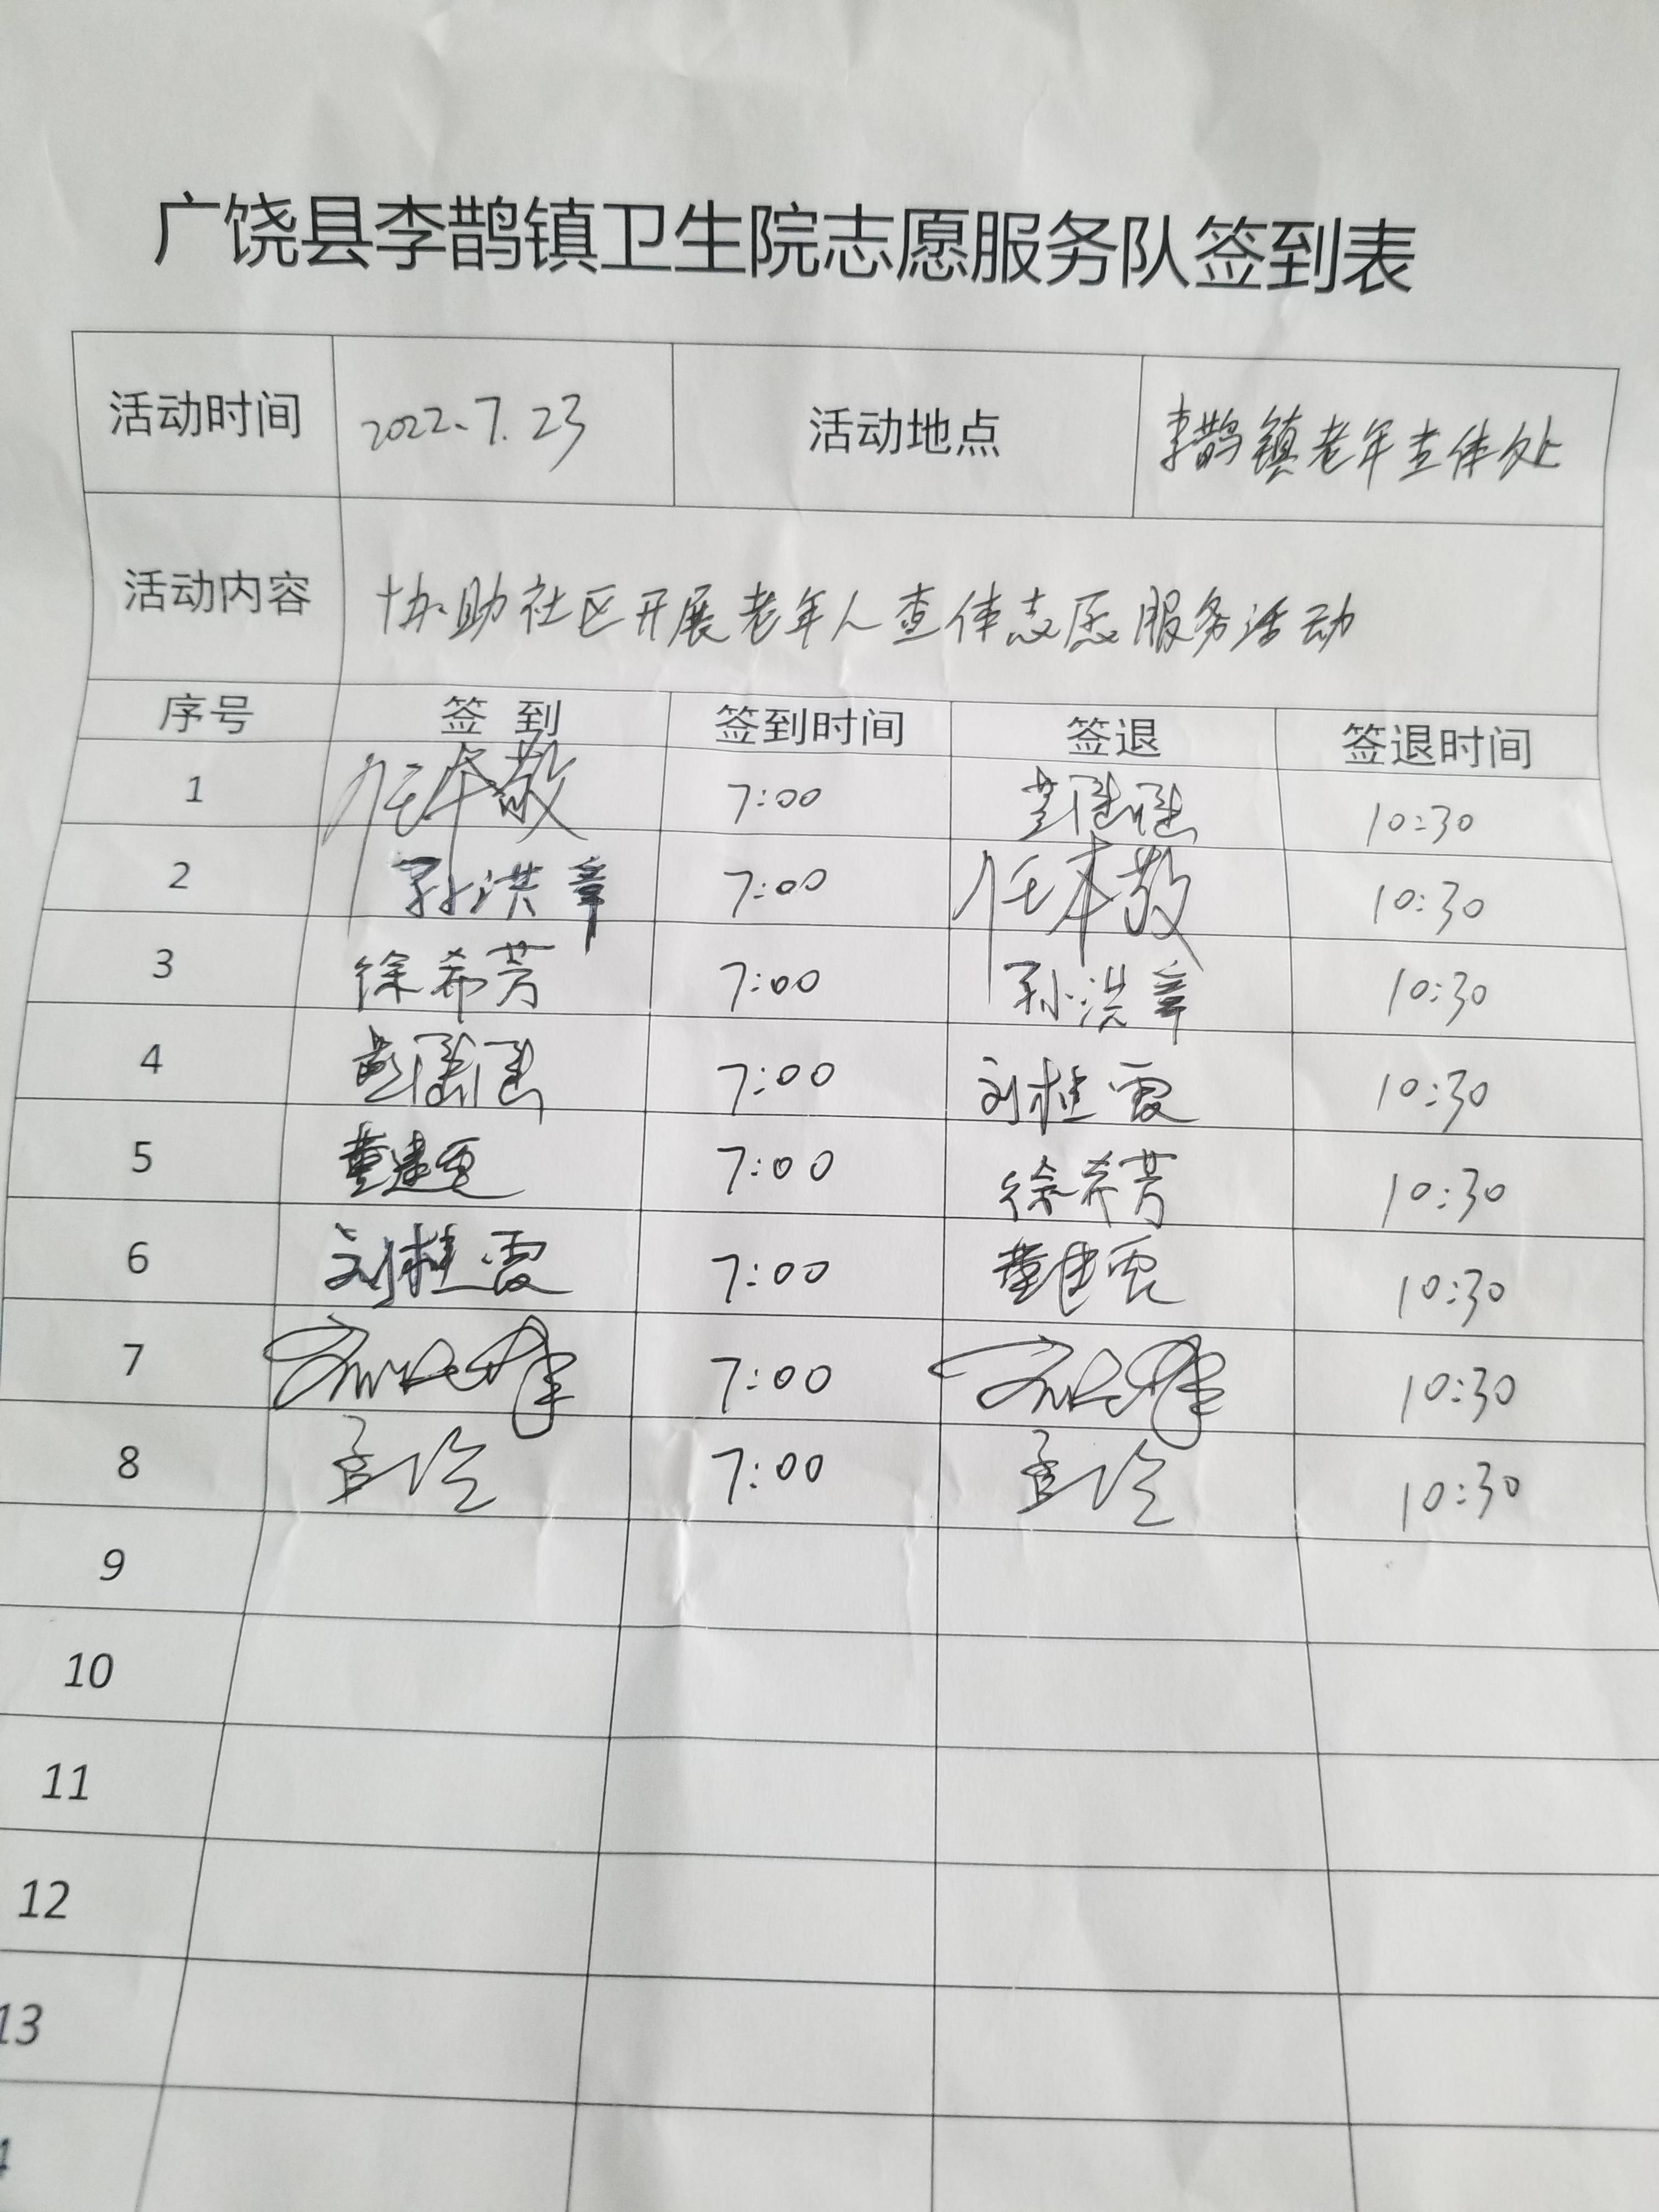 广饶县李鹊镇卫生院志愿服务队签到表
活动时间 2022.7.23 活动地点 李鹊镇老年查体处
活动内容 协助社区开展老年人查体志愿服务活动
序号 签到 签到时间 签退 签退时间
1 任本敬 7:00 10:30
2 孙洪章 7:00 任本敬 10:30
3 徐希芳 7:00 孙洪章 10:30
4 7:00 刘桂霞 10:30
5 董建霞 7:00 徐希芳 10:30
6 刘桂霞 7:00 董建霞 10:30
7 7:00 10:30
8 7:00 10:30
9
10
11
12
13
4